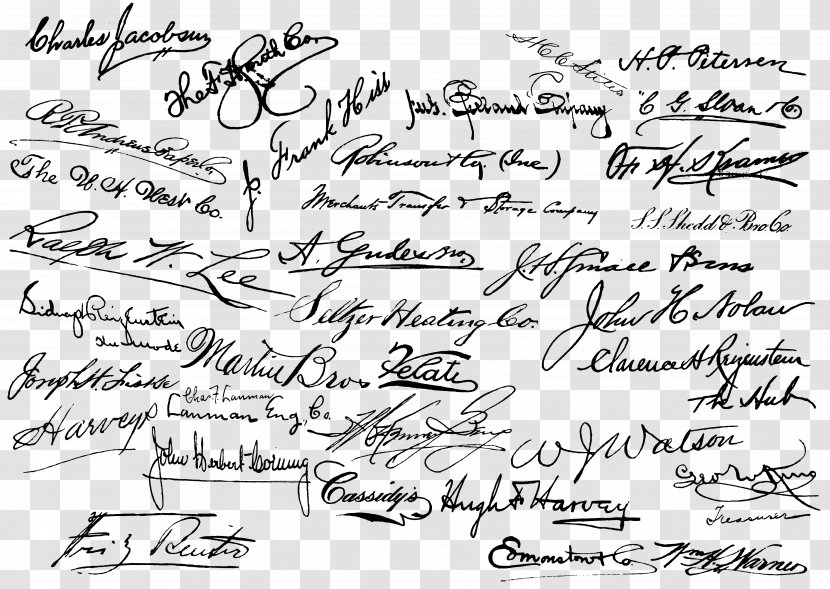 Charles Jacobsen
The F. H. Smith Co.
H. P. Petersen
Frank Hiss
Company
C G. Sloan & Co
R. P. Andrews Paper Co.
Robinson & Co. (Inc)
The W. H. West Co.
Merchants Transfer & Storage Company
S. S. Shedd & Bro. Co.
Ralph W. Lee
A. Gude & Bro.
Grace & Sons
Sidney Reizenstein
Seltzer Heating Co.
John H Nolan
Clarence H Reizenstein
Martin Bros
Velati
Joseph H.
The Hub
Chas. F. Lanman
Lanman Eng. Co.
Harveys
W J Watson
John Herbert Corning
Geo W King
Treasurer
Cassidy's
Hugh F Harvey
Fritz Reuter
Edmonston & Co.
Wm H. Warner